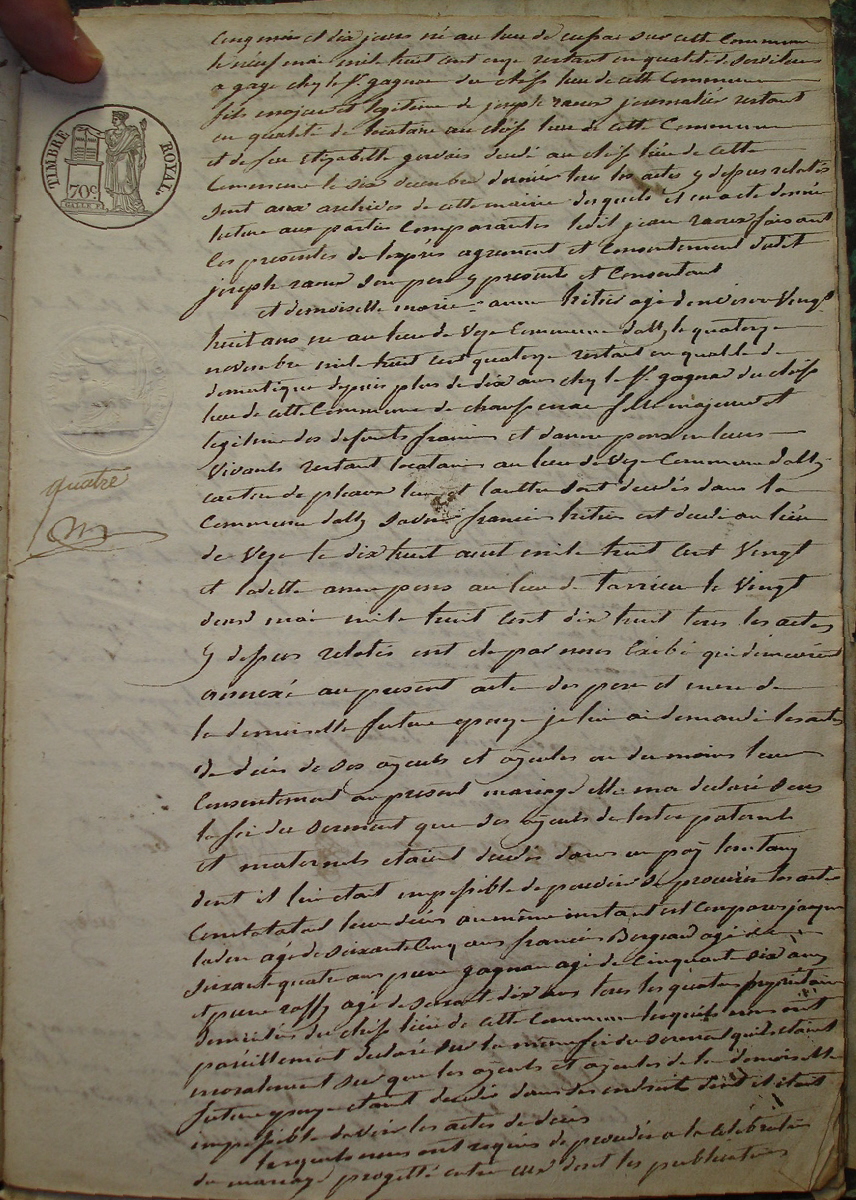 TIMBRE ROYAL.
70c
quatre
cinq mois et dix jours né au lieu de sur cette Commune
le neuf mai mil huit cent onze restant en qualité de serviteur
a gage chez le Sr. gagnac du chef lieu de cette Commune
fils majeur et legitime de joseph raoux journalier restant
en qualité de locataire au chef lieu de cette Commune
et de feu Elizabette gervais decedé au chef lieu de cette
Commune le six decembre dernier tous les actes y dessus relatés
sont aux archives de cette mairie desquels et en acte donné
lecture aux parties Comparantes ledit jean raoux faisant
les presentes de lexprès agrement et Consentement dudit
joseph raoux son pere y present et Consentant
et demoiselle marie anne hitier agé denviron Vingt
huit ans né au lieu de Veze Commune dally le quatorze
novembre mil huit cent quatorze restant en qualité de
domestique depuis plus de dix ans chez le Sr. gagnac du chef
lieu de cette Commune de fille majeure et
legitime des defunts francois et danne pons en leurs
Vivants restant locataires au lieu de Veze Commune dally
canton de pleaux lun et lautre sont decedés dans la
Commune dally savoir francois hitier est decedé au lieu
de Veze le dix huit aout mil huit cent Vingt
et ladette anne pons au lieu de le Vingt
deux mai mil huit cent dix huit tous les actes
y dessus relatés ont de par nous Exibé qui demeurent
annexé au present acte des pere et mere de
la demoiselle future epouse je lui ai demandé les actes
de décés de ses ayeuls et ayeules ou du moins leur
Consentement au present mariage elle ma declaré sous
la foi du serment que ses ayeuls de lestoc paternels
et maternels etaient decedés dans un pays lointain
dont il lui etait impossible de pouvoir se procurer les actes
Constatant leur décés au même instant est Comparu jacques
agé de soixante Cinq ans francois agé de
soixante quatre ans pierre gagnac agé de Cinquante six ans
et pierre raffy agé de dix ans tous les quatre proprietaires
domiciliés du chef lieu de cette Commune lesquels nous ont
pareillement declaré sur la meme foi du serment quils etaient
moralement sur que les ayeuls et ayeules de la demoiselle
future epouse etaient decedés dans des endroits dont il etait
impossible davoir les actes de décés
lesquels nous ont requis de proceder a la célébration
du mariage projetté entre eux dont les publications